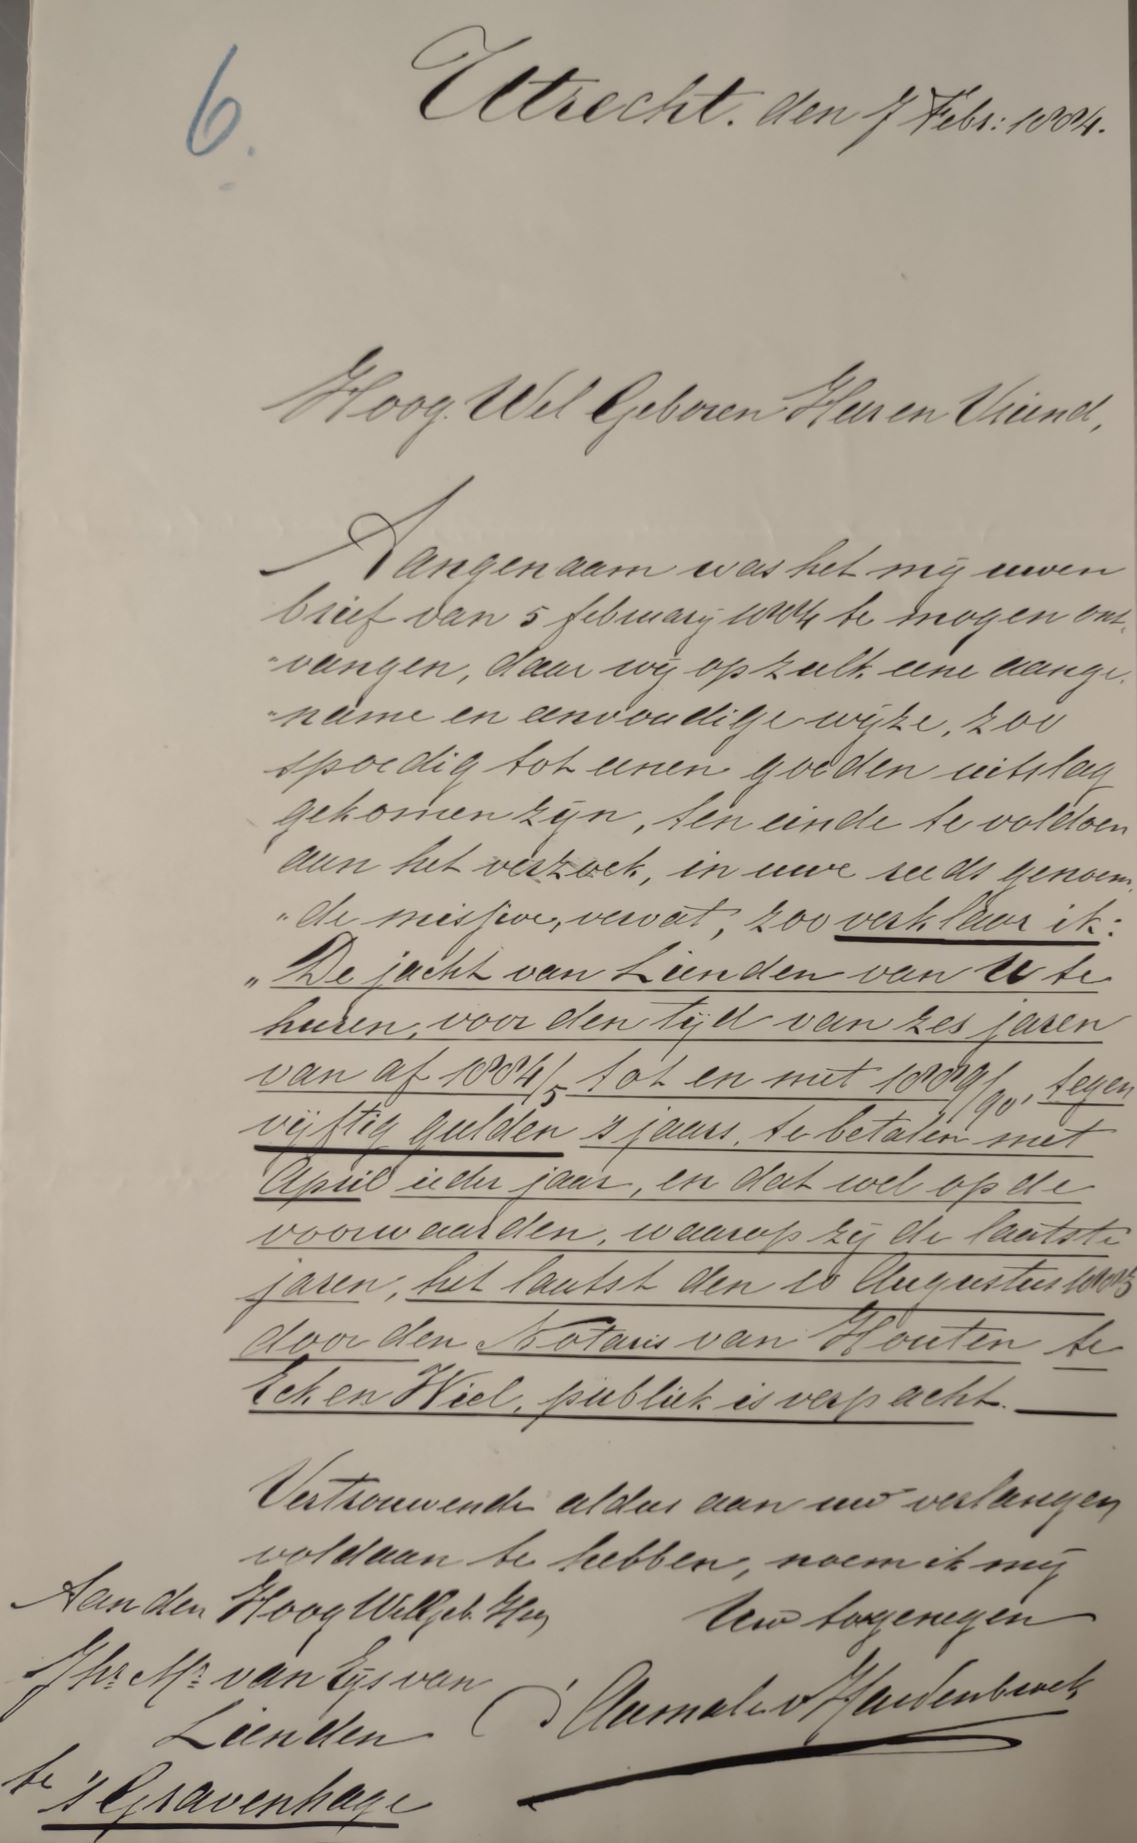 6.
Utrecht. den 7 Febr: 1884.
Hoog. Wel Geboren Heer en Vriend,
Aangenaam was het mij uwen
brief van 5 february 1884 te mogen ont-
"vangen, daar wij op zulk eene aange-
"name en eenvoudige wijze, zoo
spoedig tot eenen goeden uitslag
gekomen zijn, ten einde te voldoen
aan het verzoek, in uwe reeds genoem-
"de missive, vervat, zoo verklaar ik:
"De jacht van Lienden van U te
huren, voor den tijd van zes jaren
van af 1884/5 tot en met 1889/90, tegen
vijftig gulden 's jaars, te betalen met
April ieder jaar, en dat wel op de
voorwaarden, waarop zij de laatste
jaren, het laatst den 10 Augustus 1883
door den Notaris van Houten te
Eck en Wiel, publiek is verpacht. —
Vertrouwende aldus aan uw verlangen
voldaan te hebben, noem ik mij
Uw toegenegen
d'Aumale v Hardenbroek
Aan den Hoog WelGeb. Heer
Jhr. Mr. van Eys van
Lienden
te 's Gravenhage